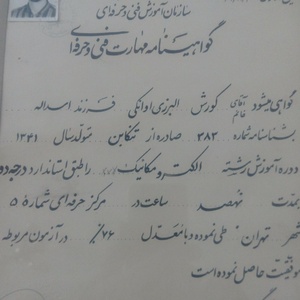 سازمان آموزش فنی و حرفه‌ای
گواهینامه مهارت فنی و حرفه‌ای
گواهی میشود آقای خانم کورش البرزی اوانکی فرزند اسداله
بشناسنامه شماره ۳۸۳ صادره از تنکابن متولد سال ۱۳۴۱
دوره آموزش رشته الکترومکانیک را طبق استاندارد درجه دو
بمدت نهصد ساعت در مرکز حرفه‌ای شماره ۵
شهر تهران طی نموده و با معدل ۷۶٪ در آزمون مربوطه
موفقیت حاصل نموده است